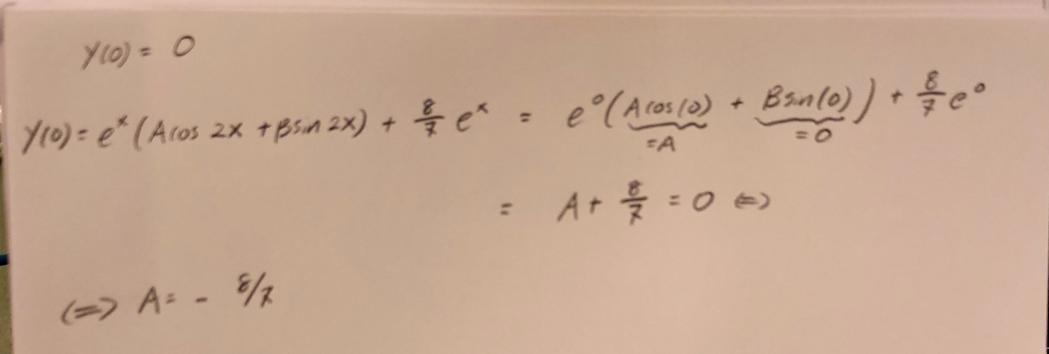 y(0) = 0
y(0) = e^x (A cos 2x + B sin 2x) + 8/7 e^x = e^0 (A cos(0) + B sin(0)) + 8/7 e^0
=A =0
= A + 8/7 = 0 <=>
<=> A = - 8/7